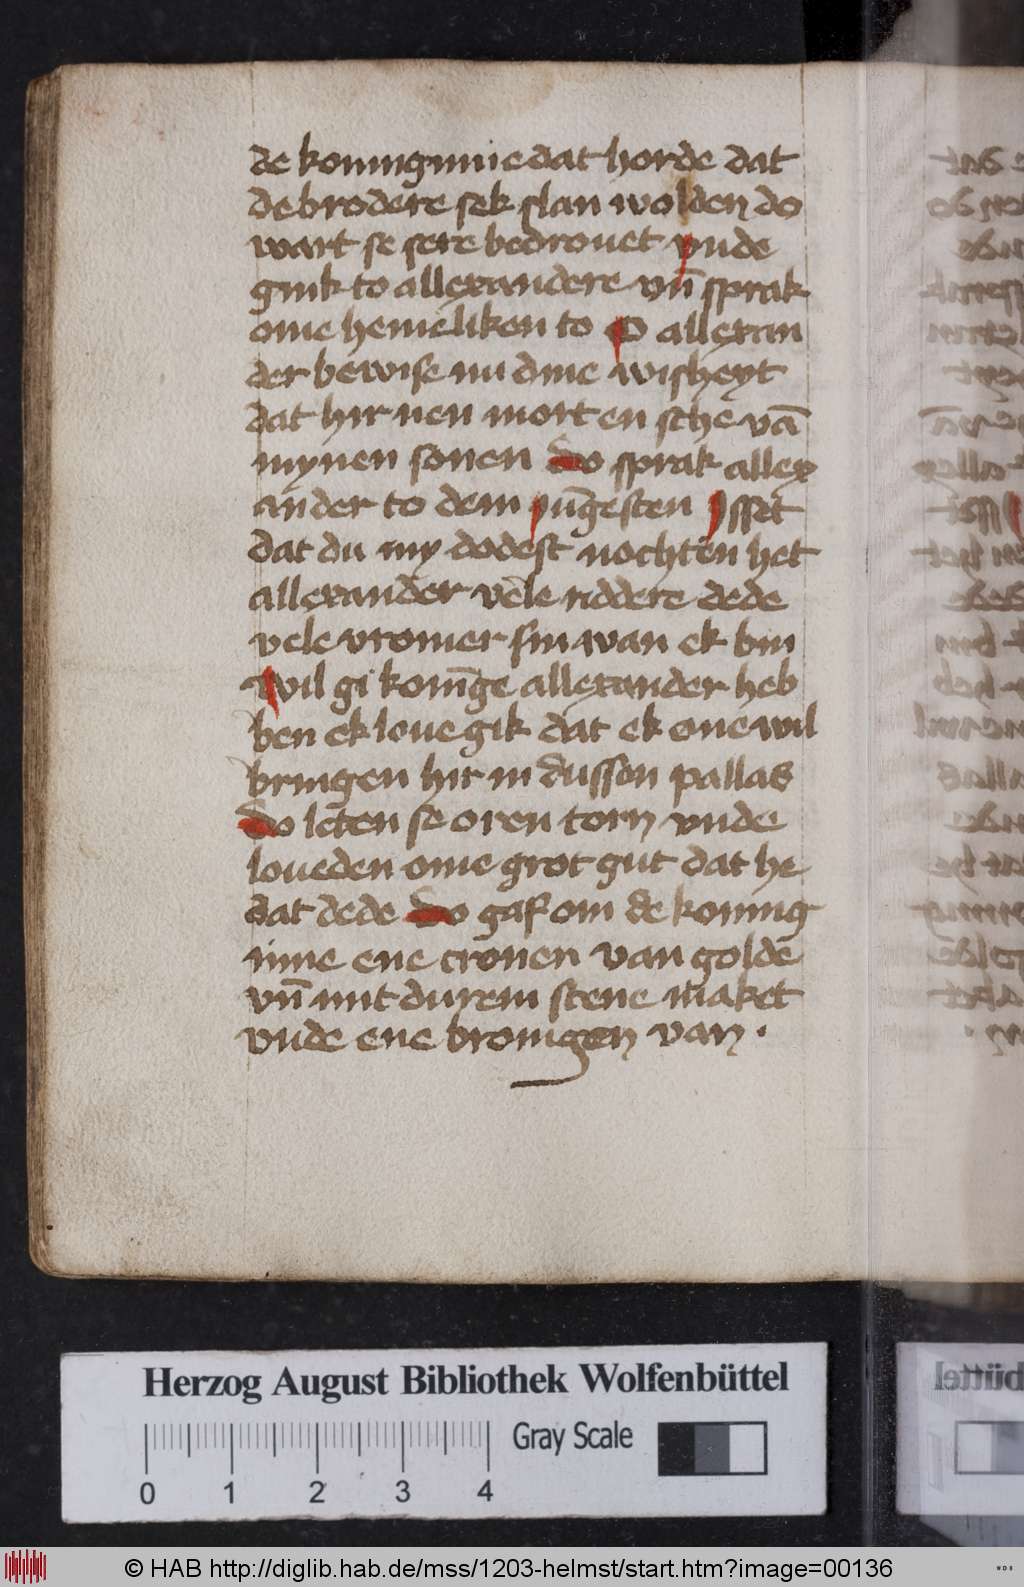 de koningnnie dat horde dat
de brodere sek slan wolden do
wart se sere bedrouet vnde
gink to allexandere vn̄ sprak
ome hemeliken to O allexan
der bewise nu dine wisheyt
dat hir nen mort en sche vā
mynen sonen do sprak allex
ander to dem iūgesten Isset
dat du my dodest nochten het
allexander vele riddere dede
vele vromer sin wan ek bin
Wil gi konīge allexander heb
ben ek loue gik dat ek one wil
bringen hir in dusson pallas
do leten se oren torn vnde
loueden ome grot gut dat he
dat dede do gaf om de koning
inne ene cronen van golde
vn̄ mit durem stene maket
vnde ene bronigen van ·
Herzog August Bibliothek Wolfenbüttel
Gray Scale
0 1 2 3 4
© HAB http://diglib.hab.de/mss/1203-helmst/start.htm?image=00136